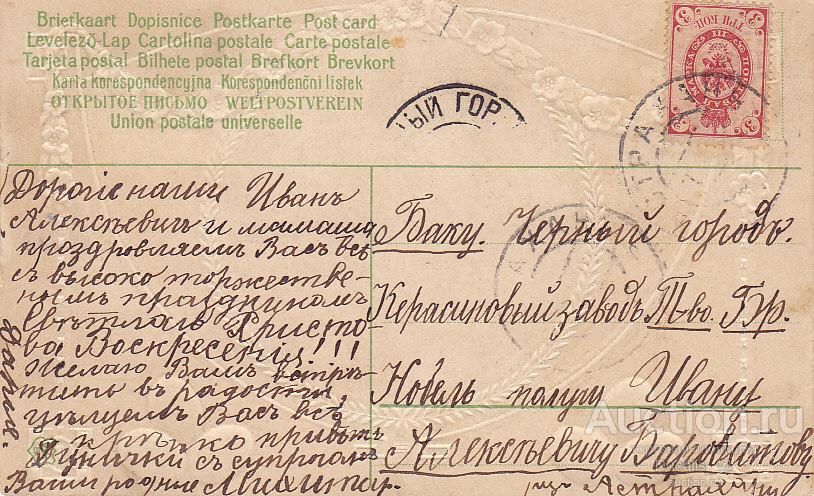 Briefkaart Dopisnice Postkarte Post card
Levelező-Lap Cartolina postale Carte postale
Tarjeta postal Bilhete postal Brefkort Brevkort
Karta korespondencyjna Korespondenčni listek
ОТКРЫТОЕ ПИСЬМО WELTPOSTVEREIN
Union postale universelle
ТРИ КОП
ЫЙ ГОР
Дорогіе наши Иванъ
Алексѣевичъ и мамаша
проздровляемъ Васъ
съ высоко торжестве-
нымъ праздникомъ
Христо-
ва Воскресенія!!!
Желаю Вамъ встрѣ-
тить въ радости,
цѣлуемъ Васъ
крѣпко
съ супругой
Ваши родные
Баку. Черный городъ.
Керасиновый заводъ Т-во. Бр.
Нобель Ивану
Алексѣевичу
изъ Астрахани
Auction.ru